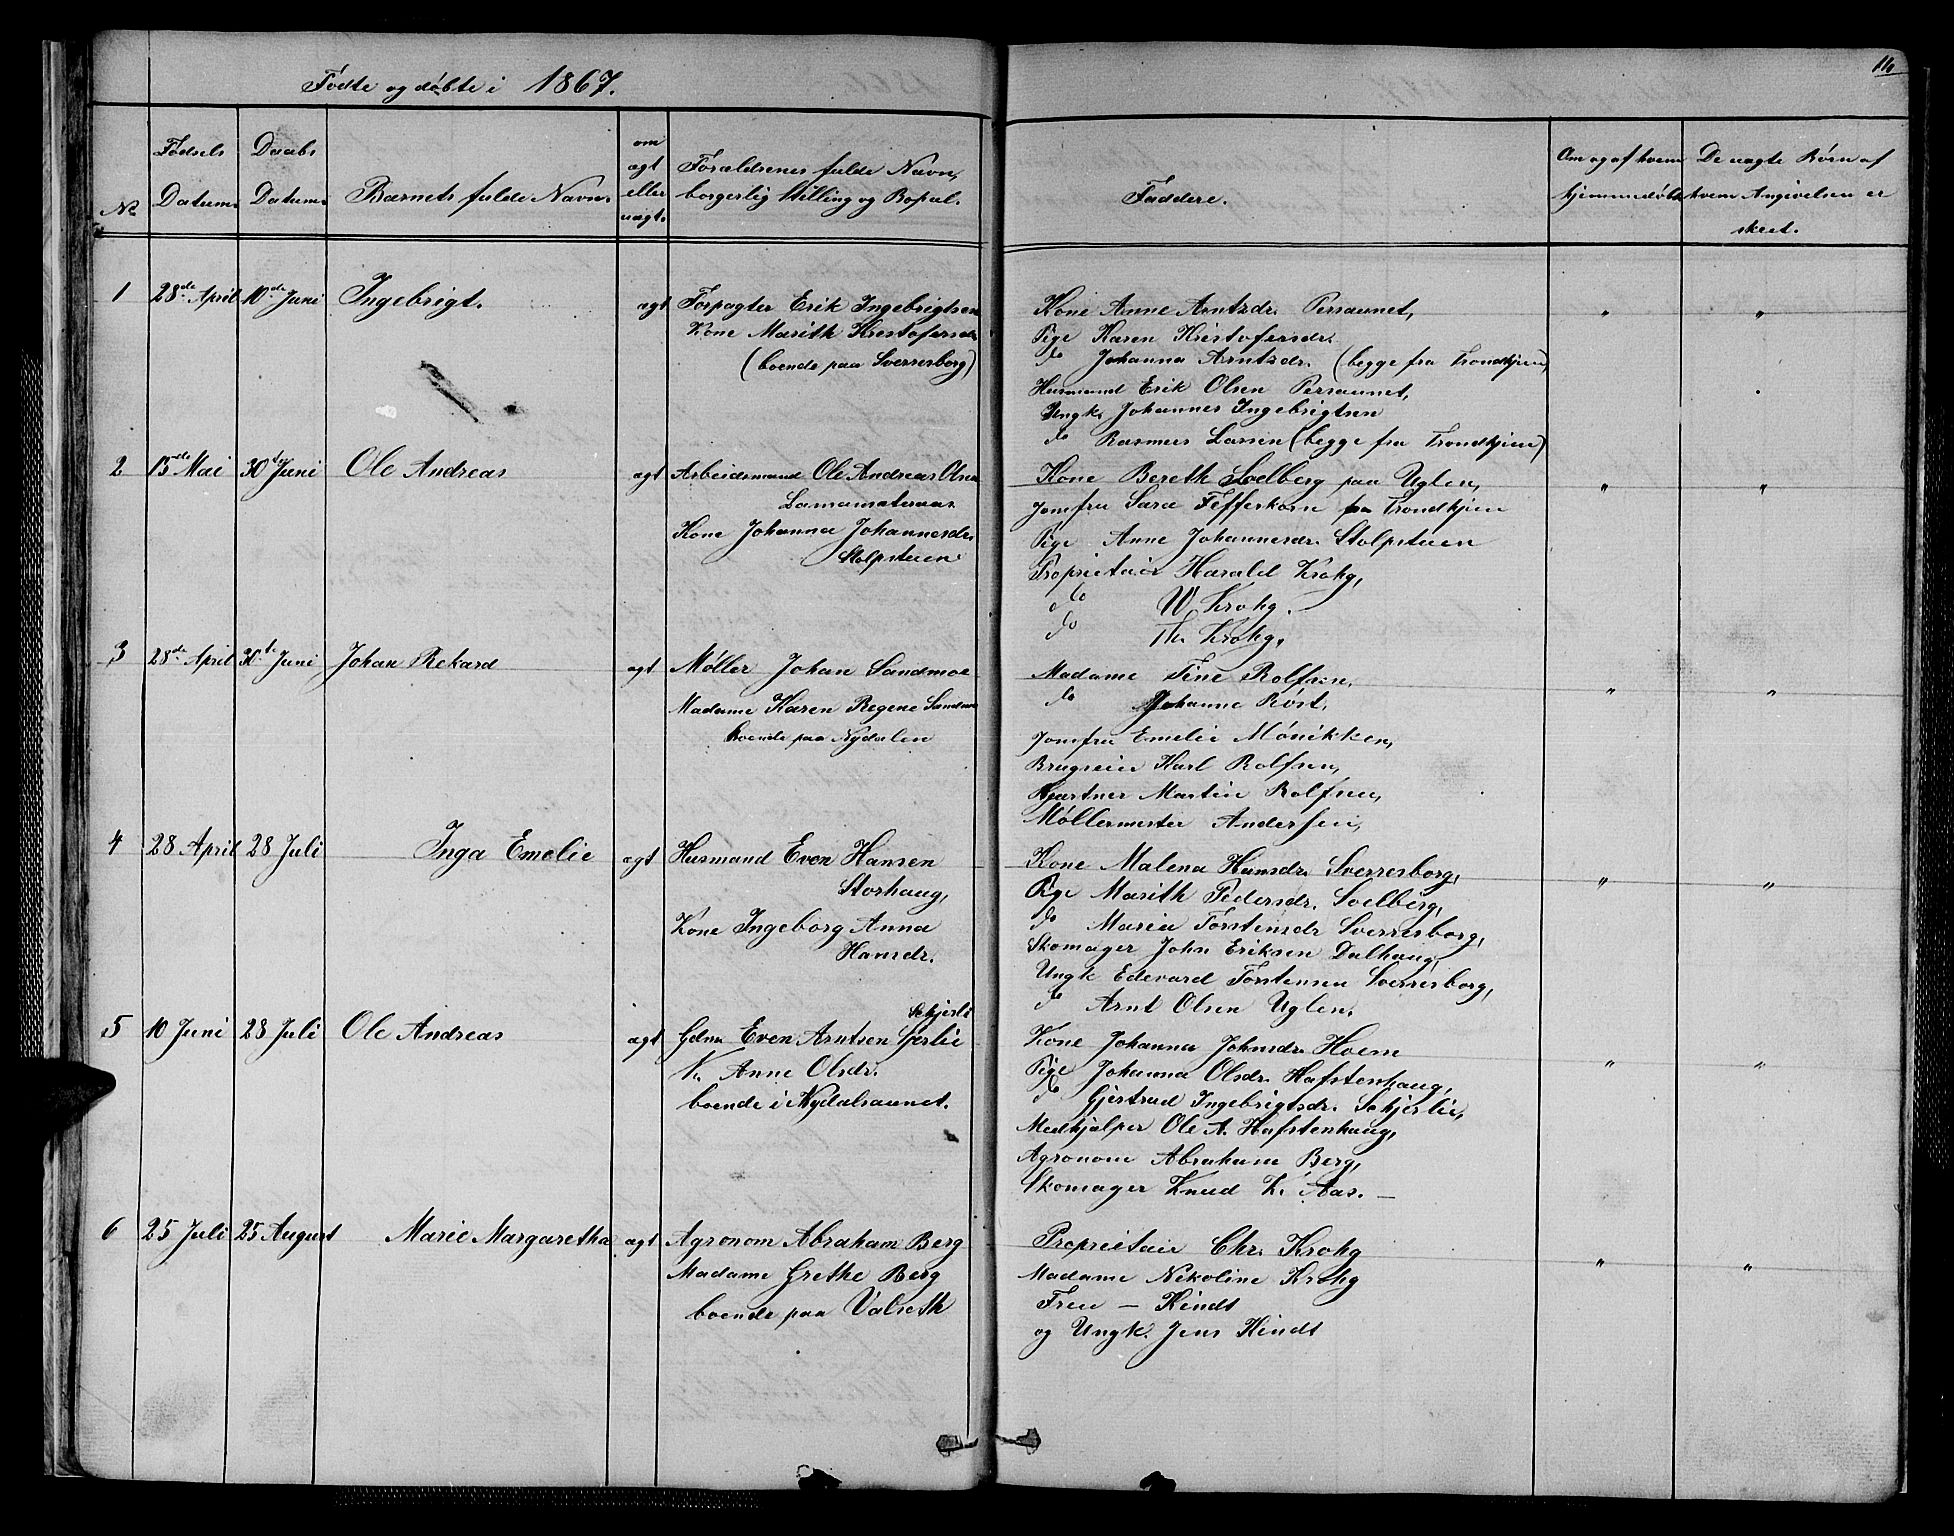 Fødte og døbte i 1867.
16
No
Fødsels Datum.
Daabs Datum.
Barnets fulde Navn.
om ægt eller uægt.
Forældrenes fulde Navn, borgerlig Stilling og Bopæl.
Faddere.
Om og af hvem hjemmedøbt
De uægte Børn af hvem Angivelsen er skeet.
1 28de April 10de Juni Ingebrigt. ægt
Forpagter Erik Ingebrigtsen
Kone Marith Kristofersdr
(boende paa Sverresborg)
Kone Anne Arntzdr. Persaunet, " "
Pige Karen Kristofersdr.
do Johanna Arntzdr. (begge fra Trondhjem)
Husmand Erik Olsen Persaunet,
Ungk. Johannes Ingebrigtsen
do Rasmus Larsen (begge fra Trondhjem)
2 15de Mai 30te Juni Ole Andreas ægt
Arbeidsmand Ole Andreas Olsen
Kone Johanna Johannesdr.
Stolpstuen
Kone Bereth Solberg paa Uglen, " "
Jomfru Sara Fefferkorn fra Trondhjem
Pige Anne Johannesdr. Stolpstuen
Proprietair Harald Krohg,
do W. Krohg.
do Th. Krohg,
3 28de April 30te Juni Johan Rekard ægt
Møller Johan Sandmoe
Madame Karen Regene Sandmoe
boende paa Nydalen
Madame Tine Rolfsen, " "
do Johanne Røst,
Jomfru Emelie Mönikken,
Brugseier Karl Rolfsen,
Gjartner Martin Rolfsen,
Møllermester Andersen,
4 28 April 28 Juli Inga Emelie ægt
Husmand Even Hansen
Storhaug,
Kone Ingeborg Anna
Hansdr.
Kone Malena Hansdr. Sverresborg, " "
Pige Marith Pedersdr. Soelberg,
do Maria Torstensdr Sverresborg,
Skomager John Eriksen Dalhaug,
Ungk Edevard Torstensen Sverresborg,
do Arnt Olsen Uglen.
5 10 Juni 28 Juli Ole Andreas ægt
Schjerli
Gdm Even Arntsen Sjerlie
K. Anne Olsdr.
boende i Nydalsaunet.
Kone Johanna Johnsdr. Hoem " "
Pige Johanna Olsdr. Hafstenhaug,
do Gjertrud Ingebrigtsdr. Schjerlie,
Medhjælper Ole A. Hafstenhaug,
Agronom Abraham Berg,
Skomager Knud K. Aas. —
6 25 Juli 25 August Marie Margaretha ægt
Agronom Abraham Berg
Madame Grethe Berg
boende paa Valseth
Proprietair Chr. Krohg " "
Madame Nikoline Krohg
Frue — Kindt
og Ungk. Jens Kindt